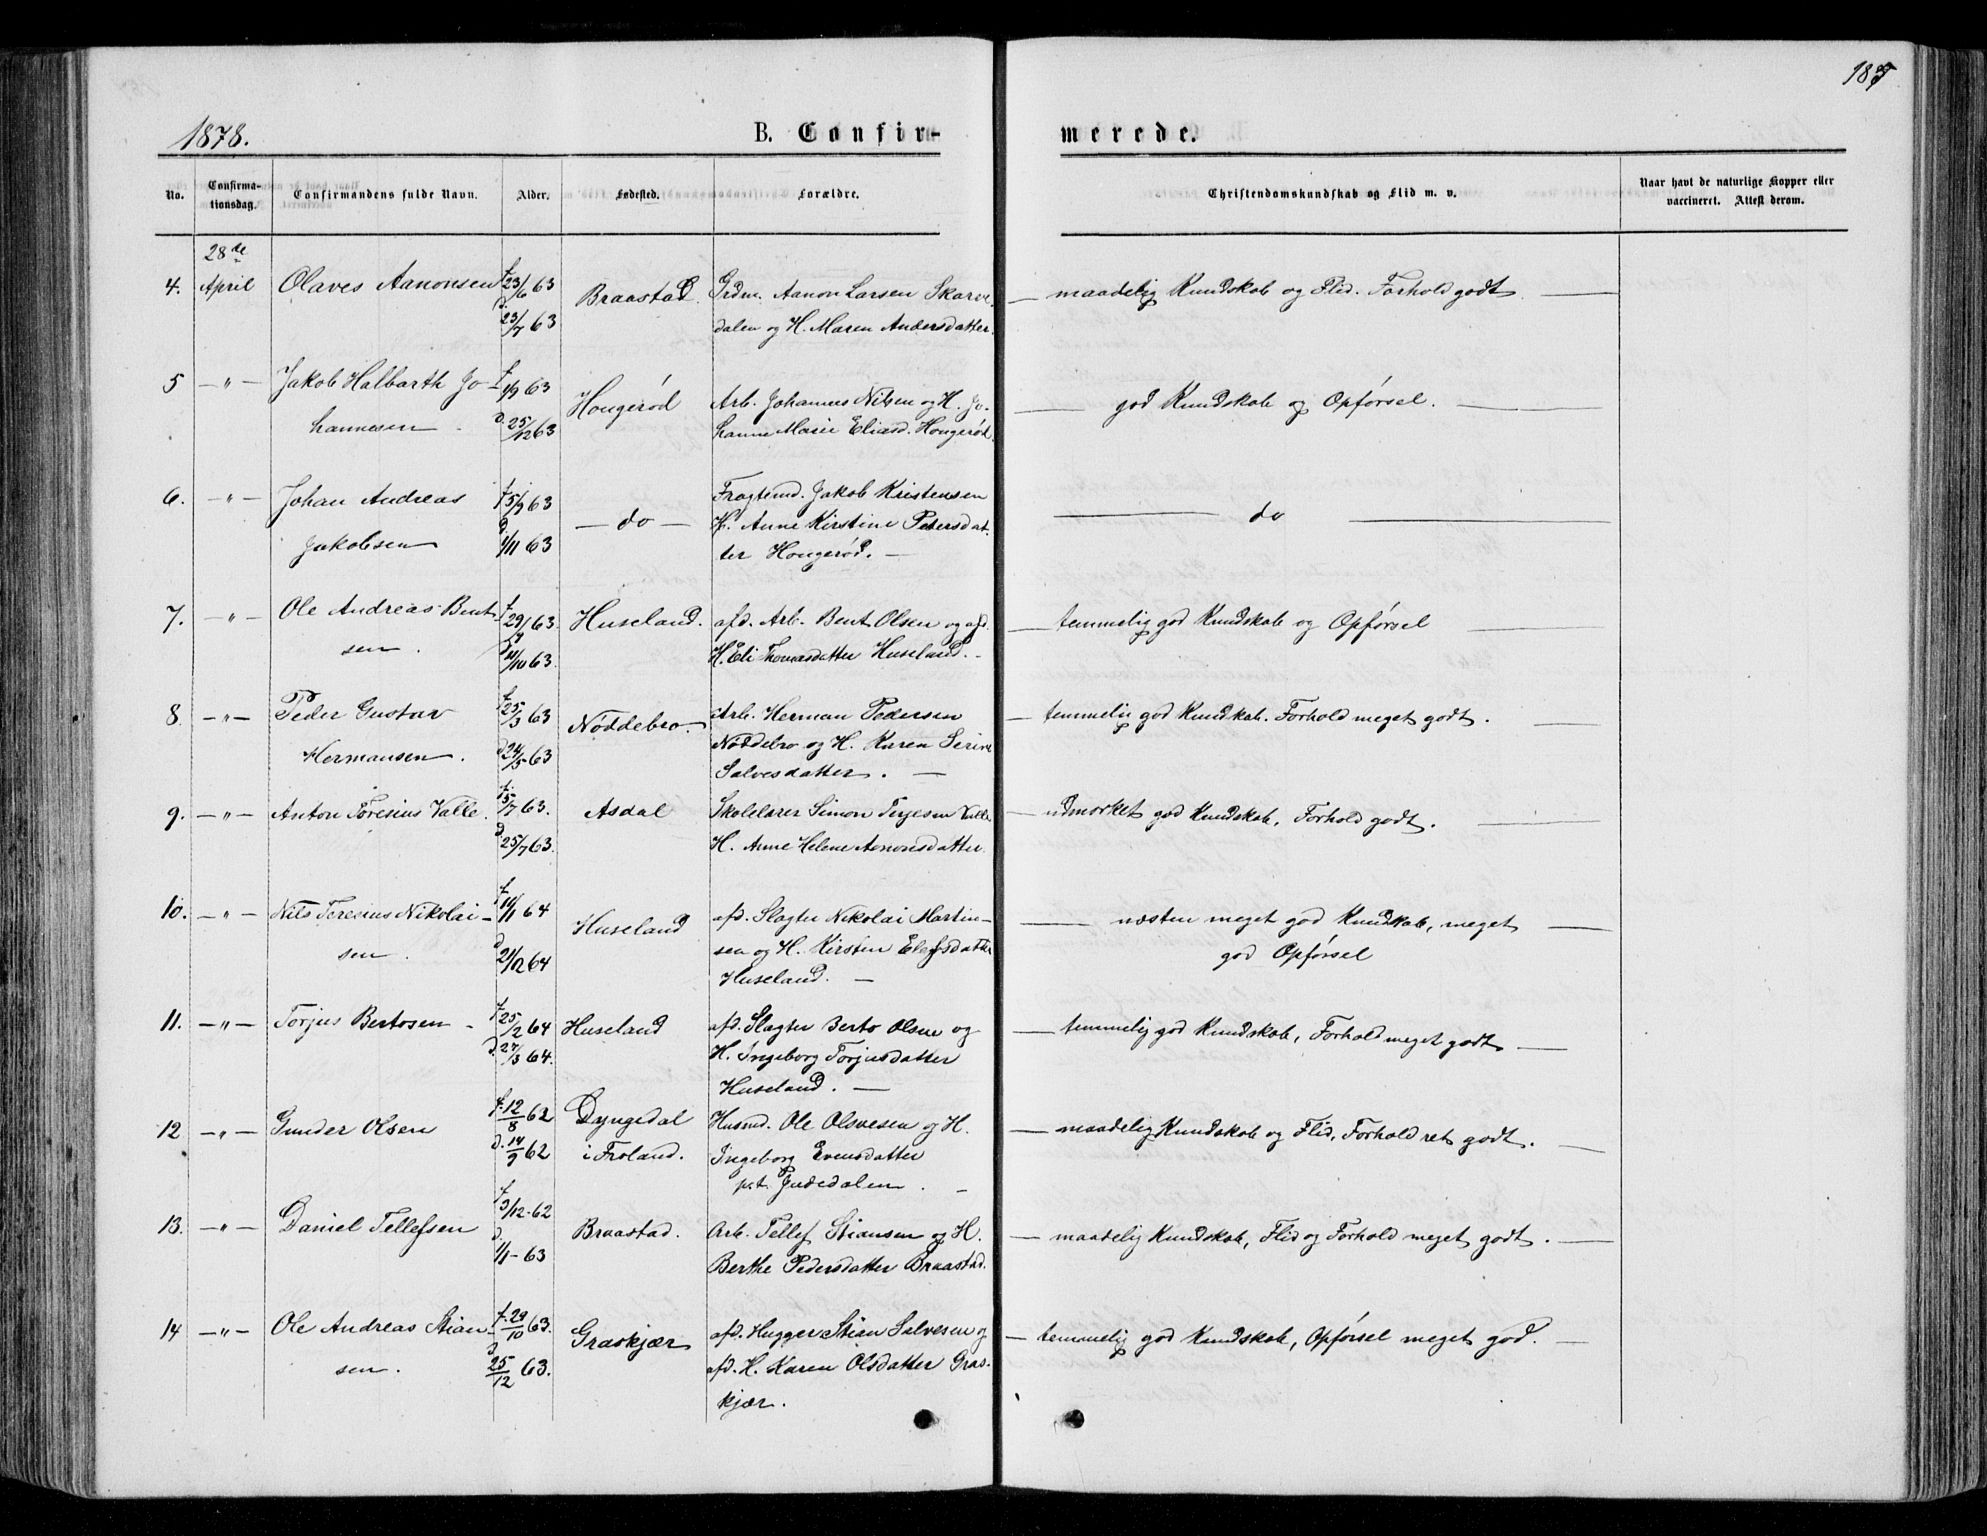 187
1878.
B. Confir-
merede.
No.
Confirma-
tionsdag.
Confirmandens fulde Navn.
Alder.
Fødested.
Forældre.
Christendomskundskab og Flid m. v.
Naar havt de naturlige Kopper eller
vaccineret. Attest derom.
28de
4. April Olaves Aanonsen f 23/6 63 Braastad Grdm. Aanon Larsen Skarve- — maadelig Kundskab og Flid. Forhold godt —
d 23/7 63 dalen og H. Maren Andersdatter.
5 —„— Jakob Halbarth Jo- f 1/9 63 Hougerød Arb. Johannes Nilsen og H. Jo- — god Kundskab og Opførsel. —
hannesen. d. 25/12 63 hanne Marie Eliasd. Hougerød.
6. —„— Johan Andreas f 5/9 63 — do — Fragtemd. Jakob Kristensen — do —
Jakobsen d 1/11 63 H. Anne Kirstine Petersdat-
ter Hougerød. —
7. —„— Ole Andreas Bent- f 29/9 63 Huseland. afd. Arb. Bent Olsen og afd. — temmelig god Kundskab og Opførsel —
sen. 63. H. Eli Thomasdatter Huseland. -
8 —„— Peder Gustav f 25/3 63 Nøddebro. Arb. Herman Pedersen — temmelig god Kundskab. Forhold meget godt. —
Hermansen. d 24/5 63 Nøddebro og H. Karen Serine
Salvesdatter. —
9. —„— Anton Toresius Valle. f. 5/7 63. Asdal Skolelærer Simon Terjesen Valle — udmærket god Kundskab, Forhold godt. —
d 25/7 63. H. Anne Helene Aanonsdatter.
10. —„— Nils Teresius Nikolai- f 64 Huseland afd. Slagter Nikolai Martin- — næsten meget god Kundskab, meget —
sen. d 64 sen og H. Kirsten Elefsdatter god Opførsel
Huseland. —
11. —„— Torjus Bertosen - f 25/2 64 Huseland afd. Slagter Berto Olsen og — temmelig god Kundskab, Forhold meget godt —
d. 27/3 64. H. Ingeborg Torjusdatter
Huseland. —
12 —„— Gunder Olsen f. 12/8 62 Dyngedal Husmd. Ole Olsvesen og H. — maadelig Kundskab og Flid, Forhold ret godt. —
d. 14/9 62 i Froland. Ingeborg Evensdatter
p.t. Judedalen. -
13. —„— Daniel Tellefsen f 3/12-62 Braastad. Arb. Tellef Stiansen og H. — maadelig Kundskab, Flid og Forhold meget godt. —
d. 1/1-63 Berthe Pedersdatter Braastad.
14 —„— Ole Andreas Stian- f. 29/10 63. Graskjær afd. Hugger Stian Salvesen og — temmelig god Kundskab, Opførsel meget god. —
sen. d 25/12 63. afd. H. Karen Olsdatter Gras-
kjær.